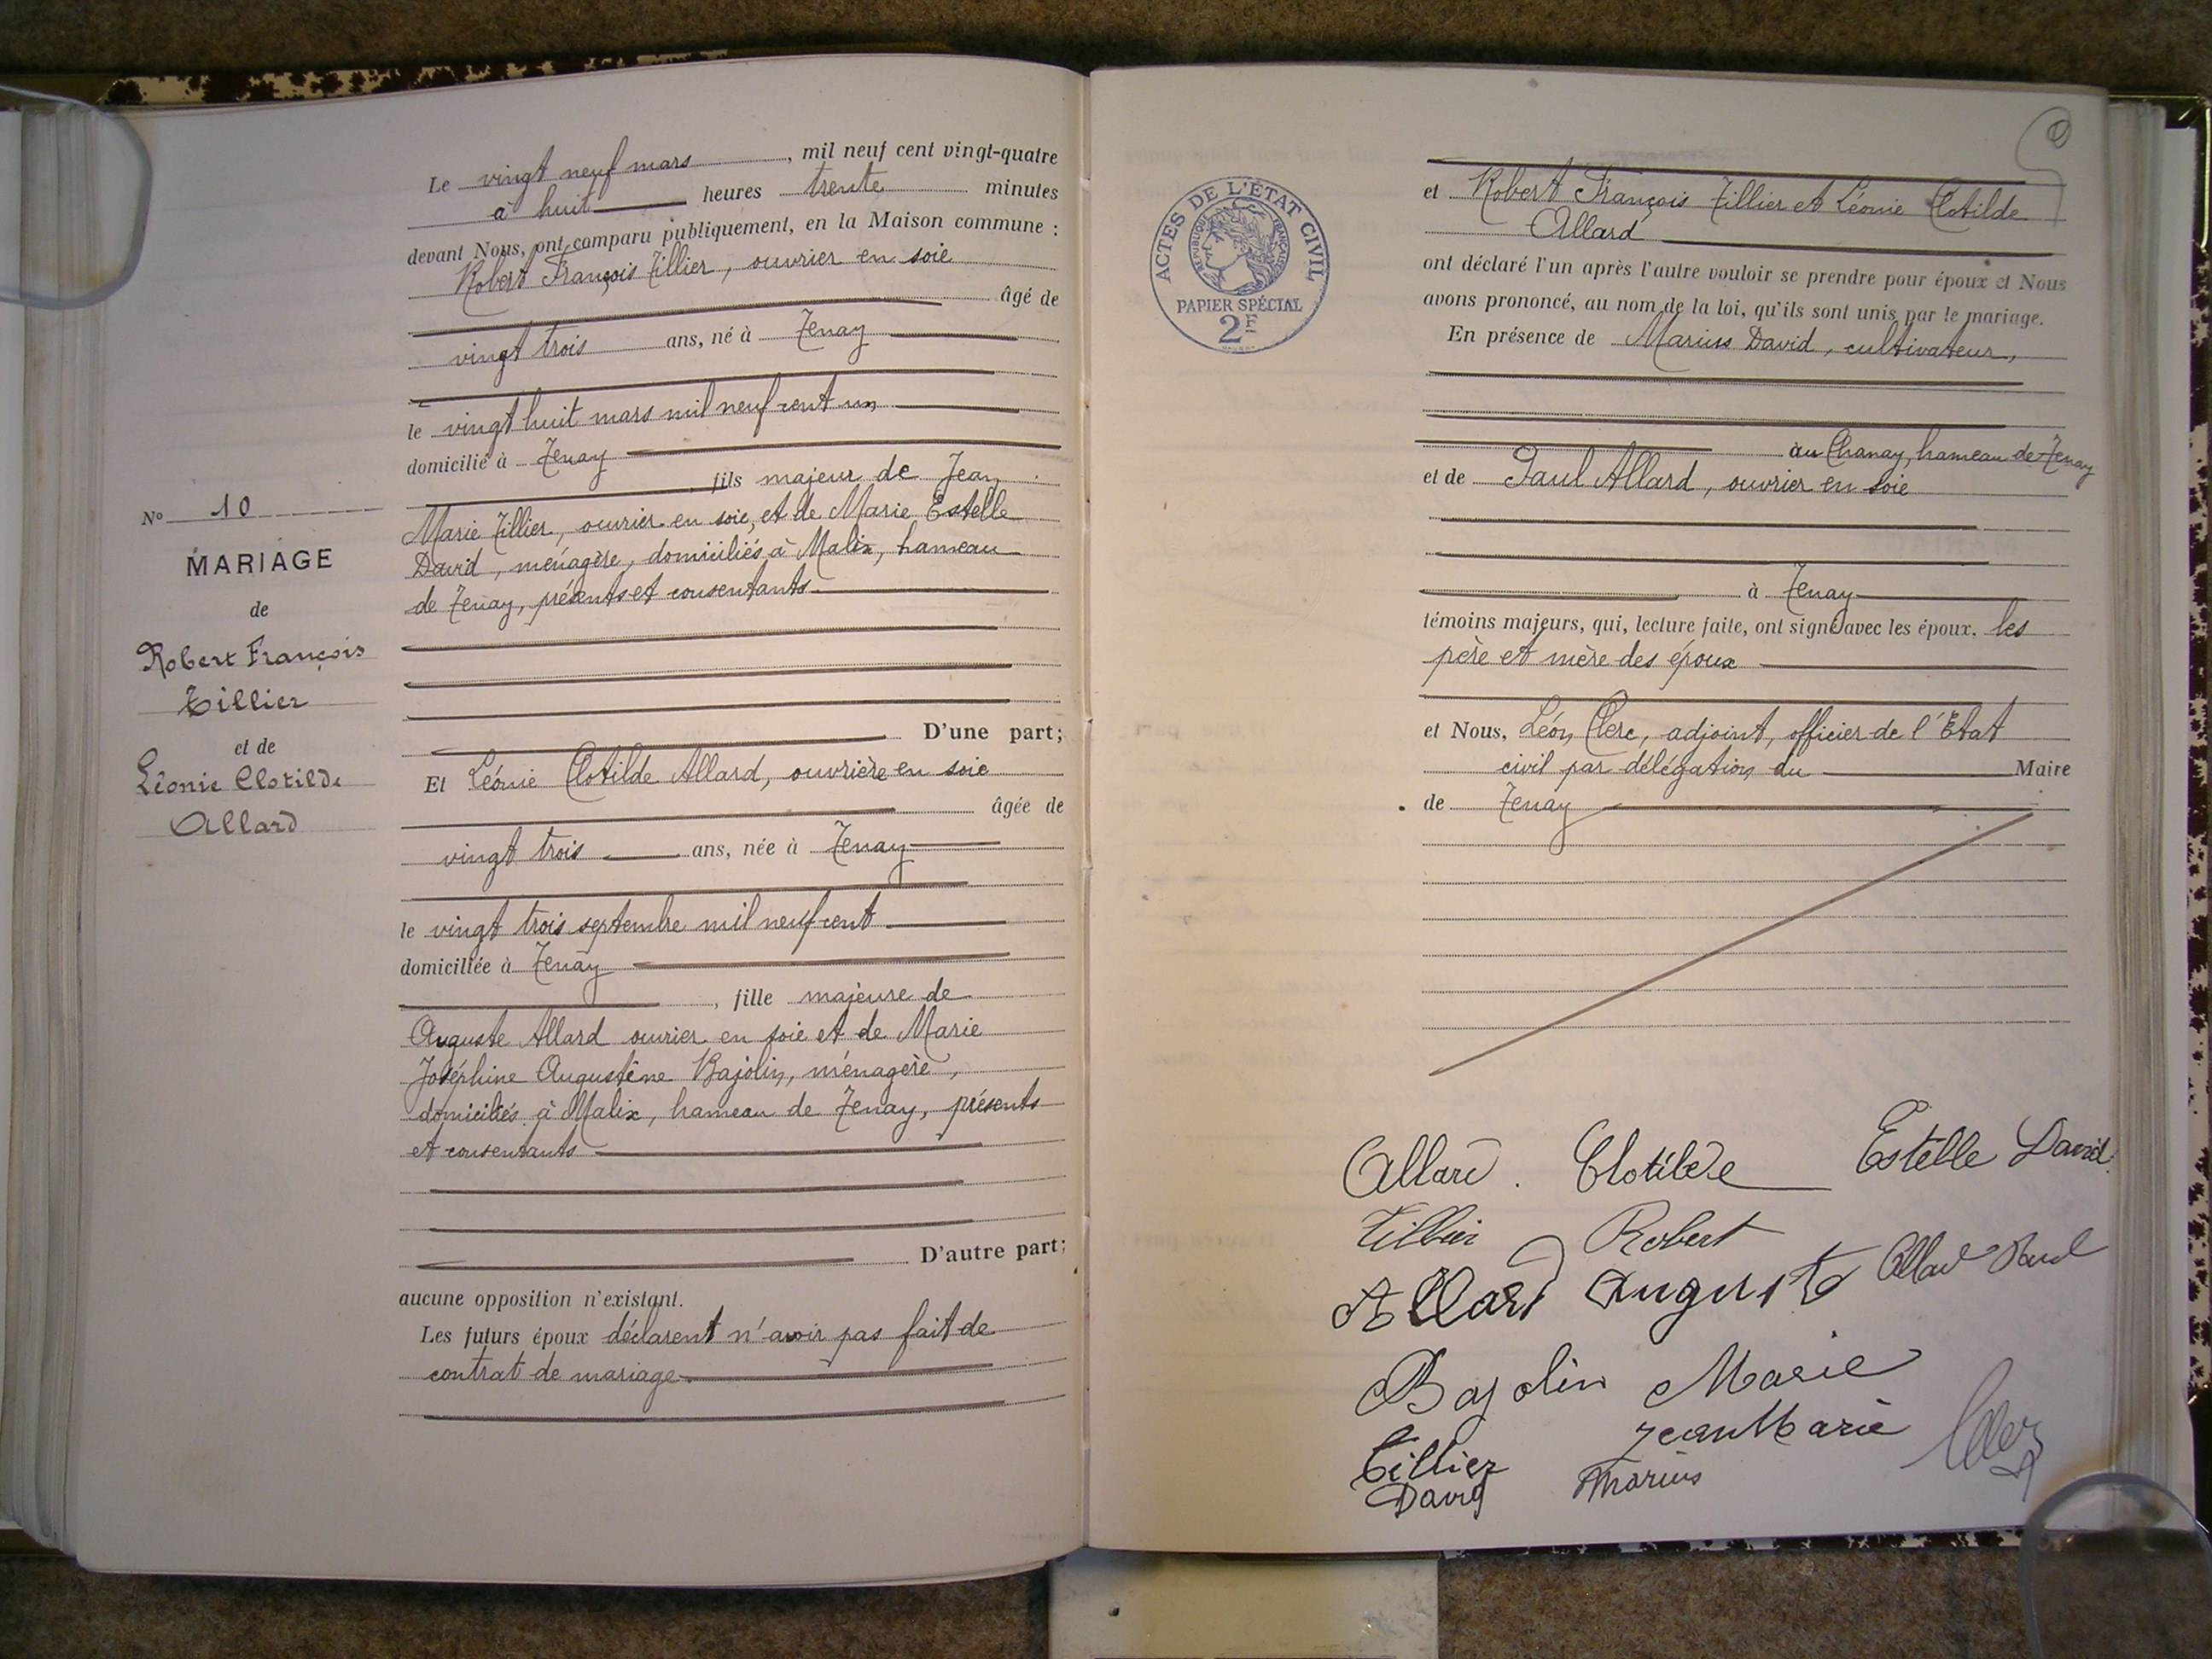 N° 10
MARIAGE
de
Robert François
Tillier
et de
Léonie Clotilde
Allard
Le vingt neuf mars, mil neuf cent vingt-quatre
à huit heures trente minutes
devant Nous, ont comparu publiquement, en la Maison commune :
Robert François Tillier, ouvrier en soie
âgé de
vingt trois ans, né à Tenay
le vingt huit mars mil neuf cent un
domicilié à Tenay
fils majeur de Jean
Marie Tillier, ouvrier en soie, et de Marie Estelle
David, ménagère, domiciliés à Malix, hameau
de Tenay, présents et consentants
D'une part;
Et Léonie Clotilde Allard, ouvrière en soie
âgée de
vingt trois ans, née à Tenay
le vingt trois septembre mil neuf cent
domiciliée à Tenay
, fille majeure de
Auguste Allard ouvrier en soie et de Marie
Joséphine Augustine Bajolin, ménagère,
domiciliés à Malix, hameau de Tenay, présents
et consentants
D'autre part;
aucune opposition n'existant.
Les futurs époux déclarent n'avoir pas fait de
contrat de mariage
ACTES DE L'ÉTAT CIVIL
RÉPUBLIQUE FRANÇAISE
PAPIER SPÉCIAL
2F
et Robert François Tillier et Léonie Clotilde
Allard
ont déclaré l'un après l'autre vouloir se prendre pour époux et Nous
avons prononcé, au nom de la loi, qu'ils sont unis par le mariage.
En présence de Marius David, cultivateur,
au Chanay, hameau de Tenay
et de Paul Allard, ouvrier en soie
à Tenay
témoins majeurs, qui, lecture faite, ont signé avec les époux. les
père et mère des époux
et Nous, Léon Clerc, adjoint, officier de l'Etat
civil par délégation du Maire
de Tenay
Allard. Clotilde Estelle David
Tillier Robert
Allard Auguste Allard Paul
Bajolin Marie
Tillier Jean Marie
David Marius